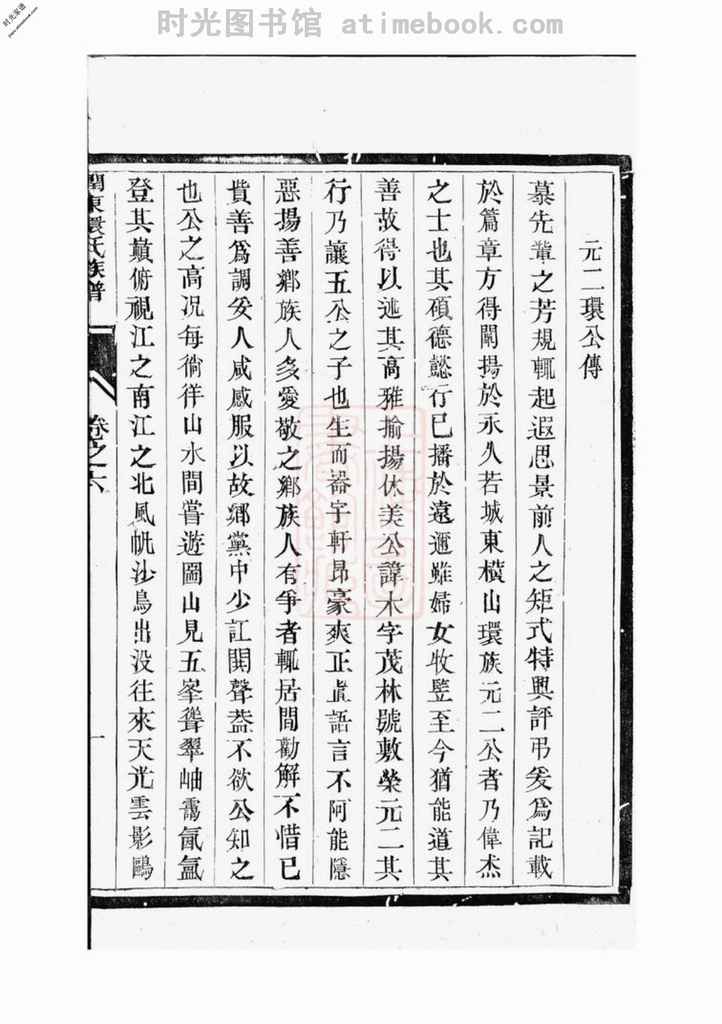 时光图书馆 atimebook.com
时光家谱
www.atimebook.com
元二環公傳
慕先輩之芳規輒起遐思景前人之矩式特興評弔爰爲記載
於篇章方得闡揚於永久若城東橫山環族元二公者乃偉杰
之士也其碩德懿行已播於遠邇雖婦女牧竪至今猶能道其
善故得以述其高雅揄揚休美公諱木字茂林號敷榮元二其
行乃讓五公之子也生而器宇軒昂豪爽正直語言不阿能隱
惡揚善鄉族人多愛敬之鄉族人有爭者輒居間勸解不惜已
貲善爲調妥人咸感服以故鄉黨中少訌鬨聲葢不欲公知之
也公之高况每徜徉山水間嘗遊圌山見五峯聳翠岫靄氤氲
登其巔俯視江之南江之北風帆沙鳥出没往來天光雲影鷗
潤東環氏族譜
卷之六
一